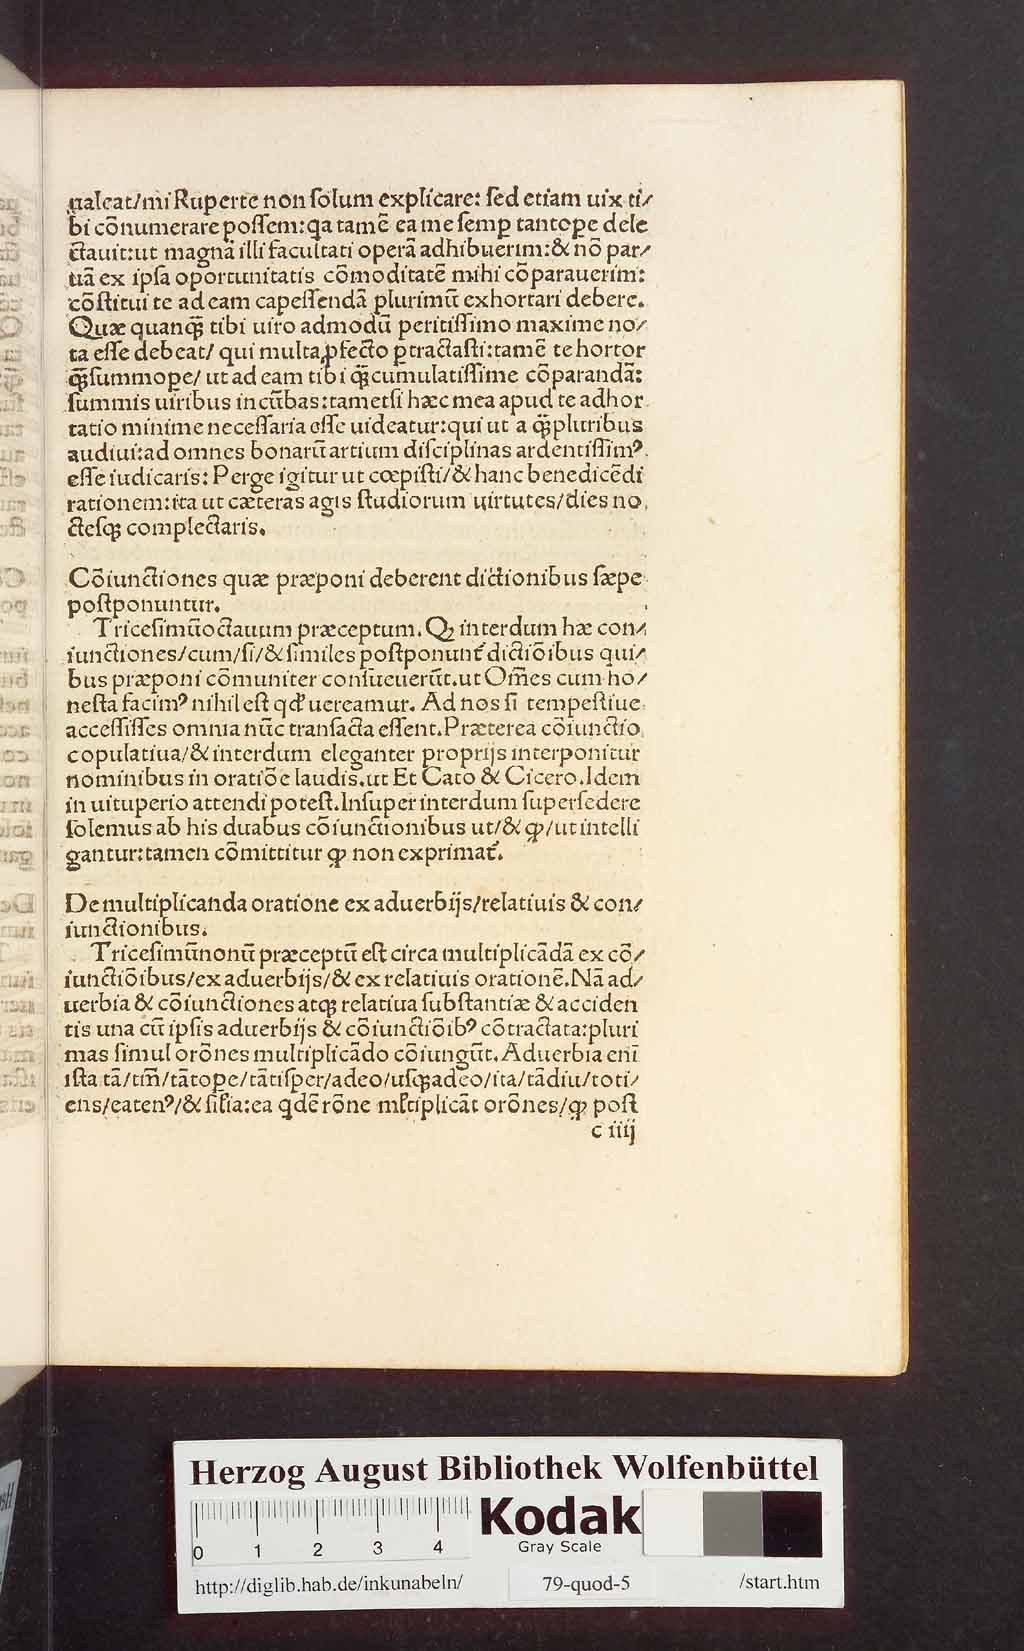 ualeat/mi Ruperte non ſolum explicare: ſed etiam uix ti/
bi cōnumerare poſſem:qa tamē ea me ſemꝑ tantoꝑe dele
ctauit:ut magnā illi facultati operā adhibuerim:& nō par/
uā ex ipſa oportunitatis cōmoditatē mihi cōparauerim:
cōſtitui te ad eam capeſſendā plurimū exhortari debere.
Quæ quanqꝫ tibi uiro admodū peritiſſimo maxime no/
ta eſſe debeat/ qui multa ꝓfecto ꝑtractaſti:tamē te hortor
qꝫſummoꝑe/ ut ad eam tibi qꝫcumulatiſſime cōparandā:
ſummis uiribus incūbas:tametſi hæc mea apud te adhor
tatio minime neceſſaria eſſe uideatur:qui ut a qꝫpluribus
audiui:ad omnes bonarū artium diſciplinas ardentiſſimꝰ
eſſe iudicaris: Perge igitur ut cœpiſti/& hanc benedicēdi
rationem:ita ut cæteras agis ſtudiorum uirtutes/dies no
cteſqꝫ complectaris.
Cōiunctiones quæ præponi deberent dictionibus ſæpe
poſtponuntur.
Triceſimūoctauum præceptum. Qꝫ interdum hæ con/
iunctiones/cum/ſi/& ſimiles poſtponunt᷑ dictiōibus qui/
bus præponi cōmuniter conſueuerūt.ut Oēs cum ho/
neſta facimꝰ nihil eſt qd' uereamur. Ad nos ſi tempeſtiue
acceſſiſſes omnia nūc tranſacta eſſent.Præterea cōiunctio
copulatiua/& interdum eleganter proprijs interponitur
nominibus in oratiōe laudis.ut Et Cato & Cicero.Idem
in uituperio attendi poteſt.Inſuper interdum ſuperſedere
ſolemus ab his duabus cōiunctionibus ut/& ꝙ/ut intelli
gantur:tamen cōmittitur ꝙ non exprimat᷑.
De multiplicanda oratione ex aduerbijs/relatiuis & con/
iunctionibus.
Triceſimūnonū præceptū eſt circa multiplicādā ex cō/
iunctiōibus/ex aduerbijs/& ex relatiuis orationē.Nā ad/
uerbia & cōiunctiones atqꝫ relatiua ſubſtantiæ & acciden
tis una cū ipſis aduerbijs & cōiunctiōibꝰ cōtractata:pluri
mas ſimul orōnes multiplicādo cōiungūt.Aduerbia enī
iſta tā/tm̄/tātoꝑe/tātiſper/adeo/uſqꝫadeo/ita/tādiu/toti/
ens/eatenꝰ/& ſil'ia:ea qdē rōne ml'tiplicāt orōnes/ꝙ poſt
c iiij
Herzog August Bibliothek Wolfenbüttel
Kodak
Gray Scale
0 1 2 3 4
http://diglib.hab.de/inkunabeln/ 79-quod-5 /start.htm